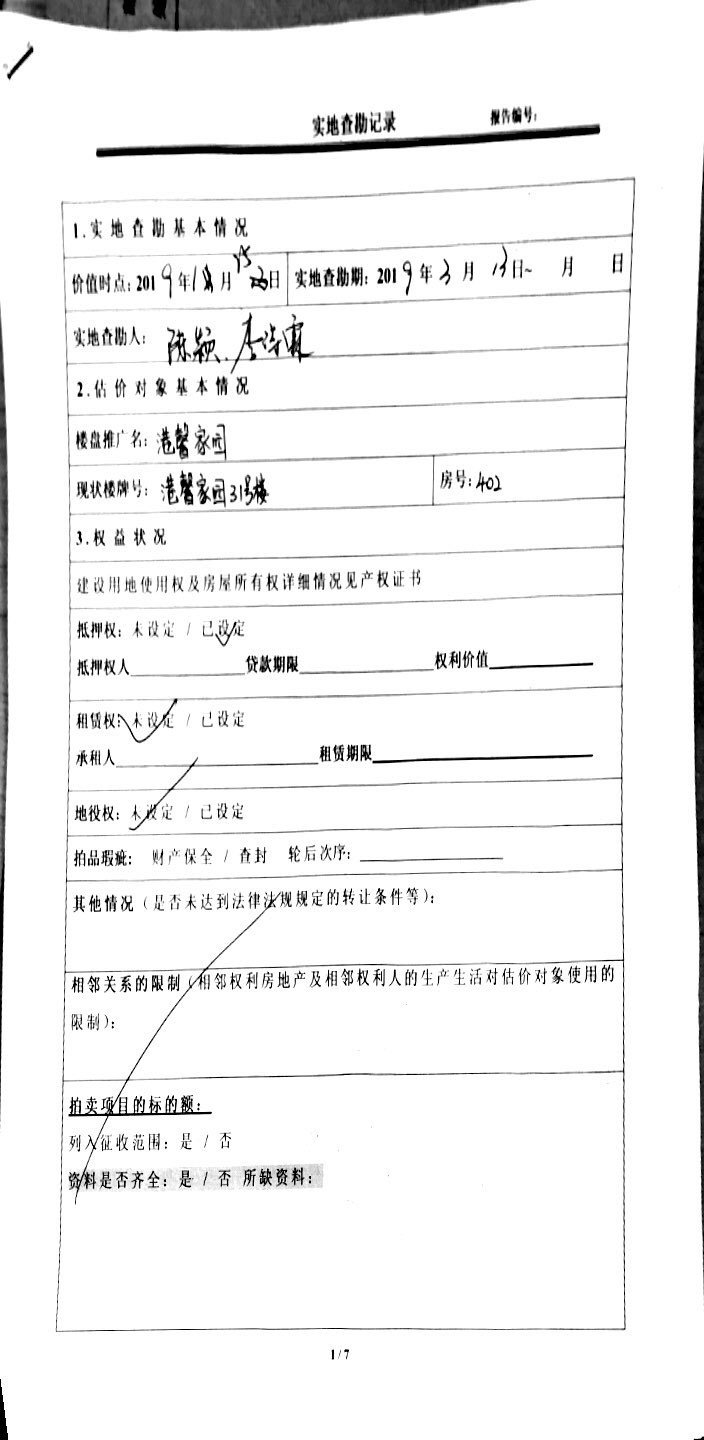 实地查勘记录 报告编号:
1.实地查勘基本情况
价值时点:2019年1月 日 实地查勘期:2019年3月13日~ 月 日
实地查勘人: 陈颖、李
2.估价对象基本情况
楼盘推广名: 港馨家园
现状楼牌号: 港馨家园31号楼 房号:402
3.权益状况
建设用地使用权及房屋所有权详细情况见产权证书
抵押权: 未设定 / 已设定
抵押权人 贷款期限 权利价值
租赁权: 未设定 / 已设定
承租人 租赁期限
地役权: 未设定 / 已设定
拍品瑕疵: 财产保全 / 查封 轮后次序:
其他情况(是否未达到法律法规规定的转让条件等):
相邻关系的限制(相邻权利房地产及相邻权利人的生产生活对估价对象使用的
限制):
拍卖项目的标的额:
列入征收范围: 是 / 否
资料是否齐全: 是 / 否 所缺资料:
1/7